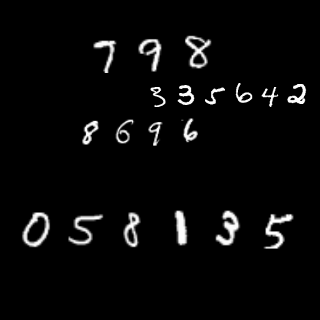 798
335642
8696
058135